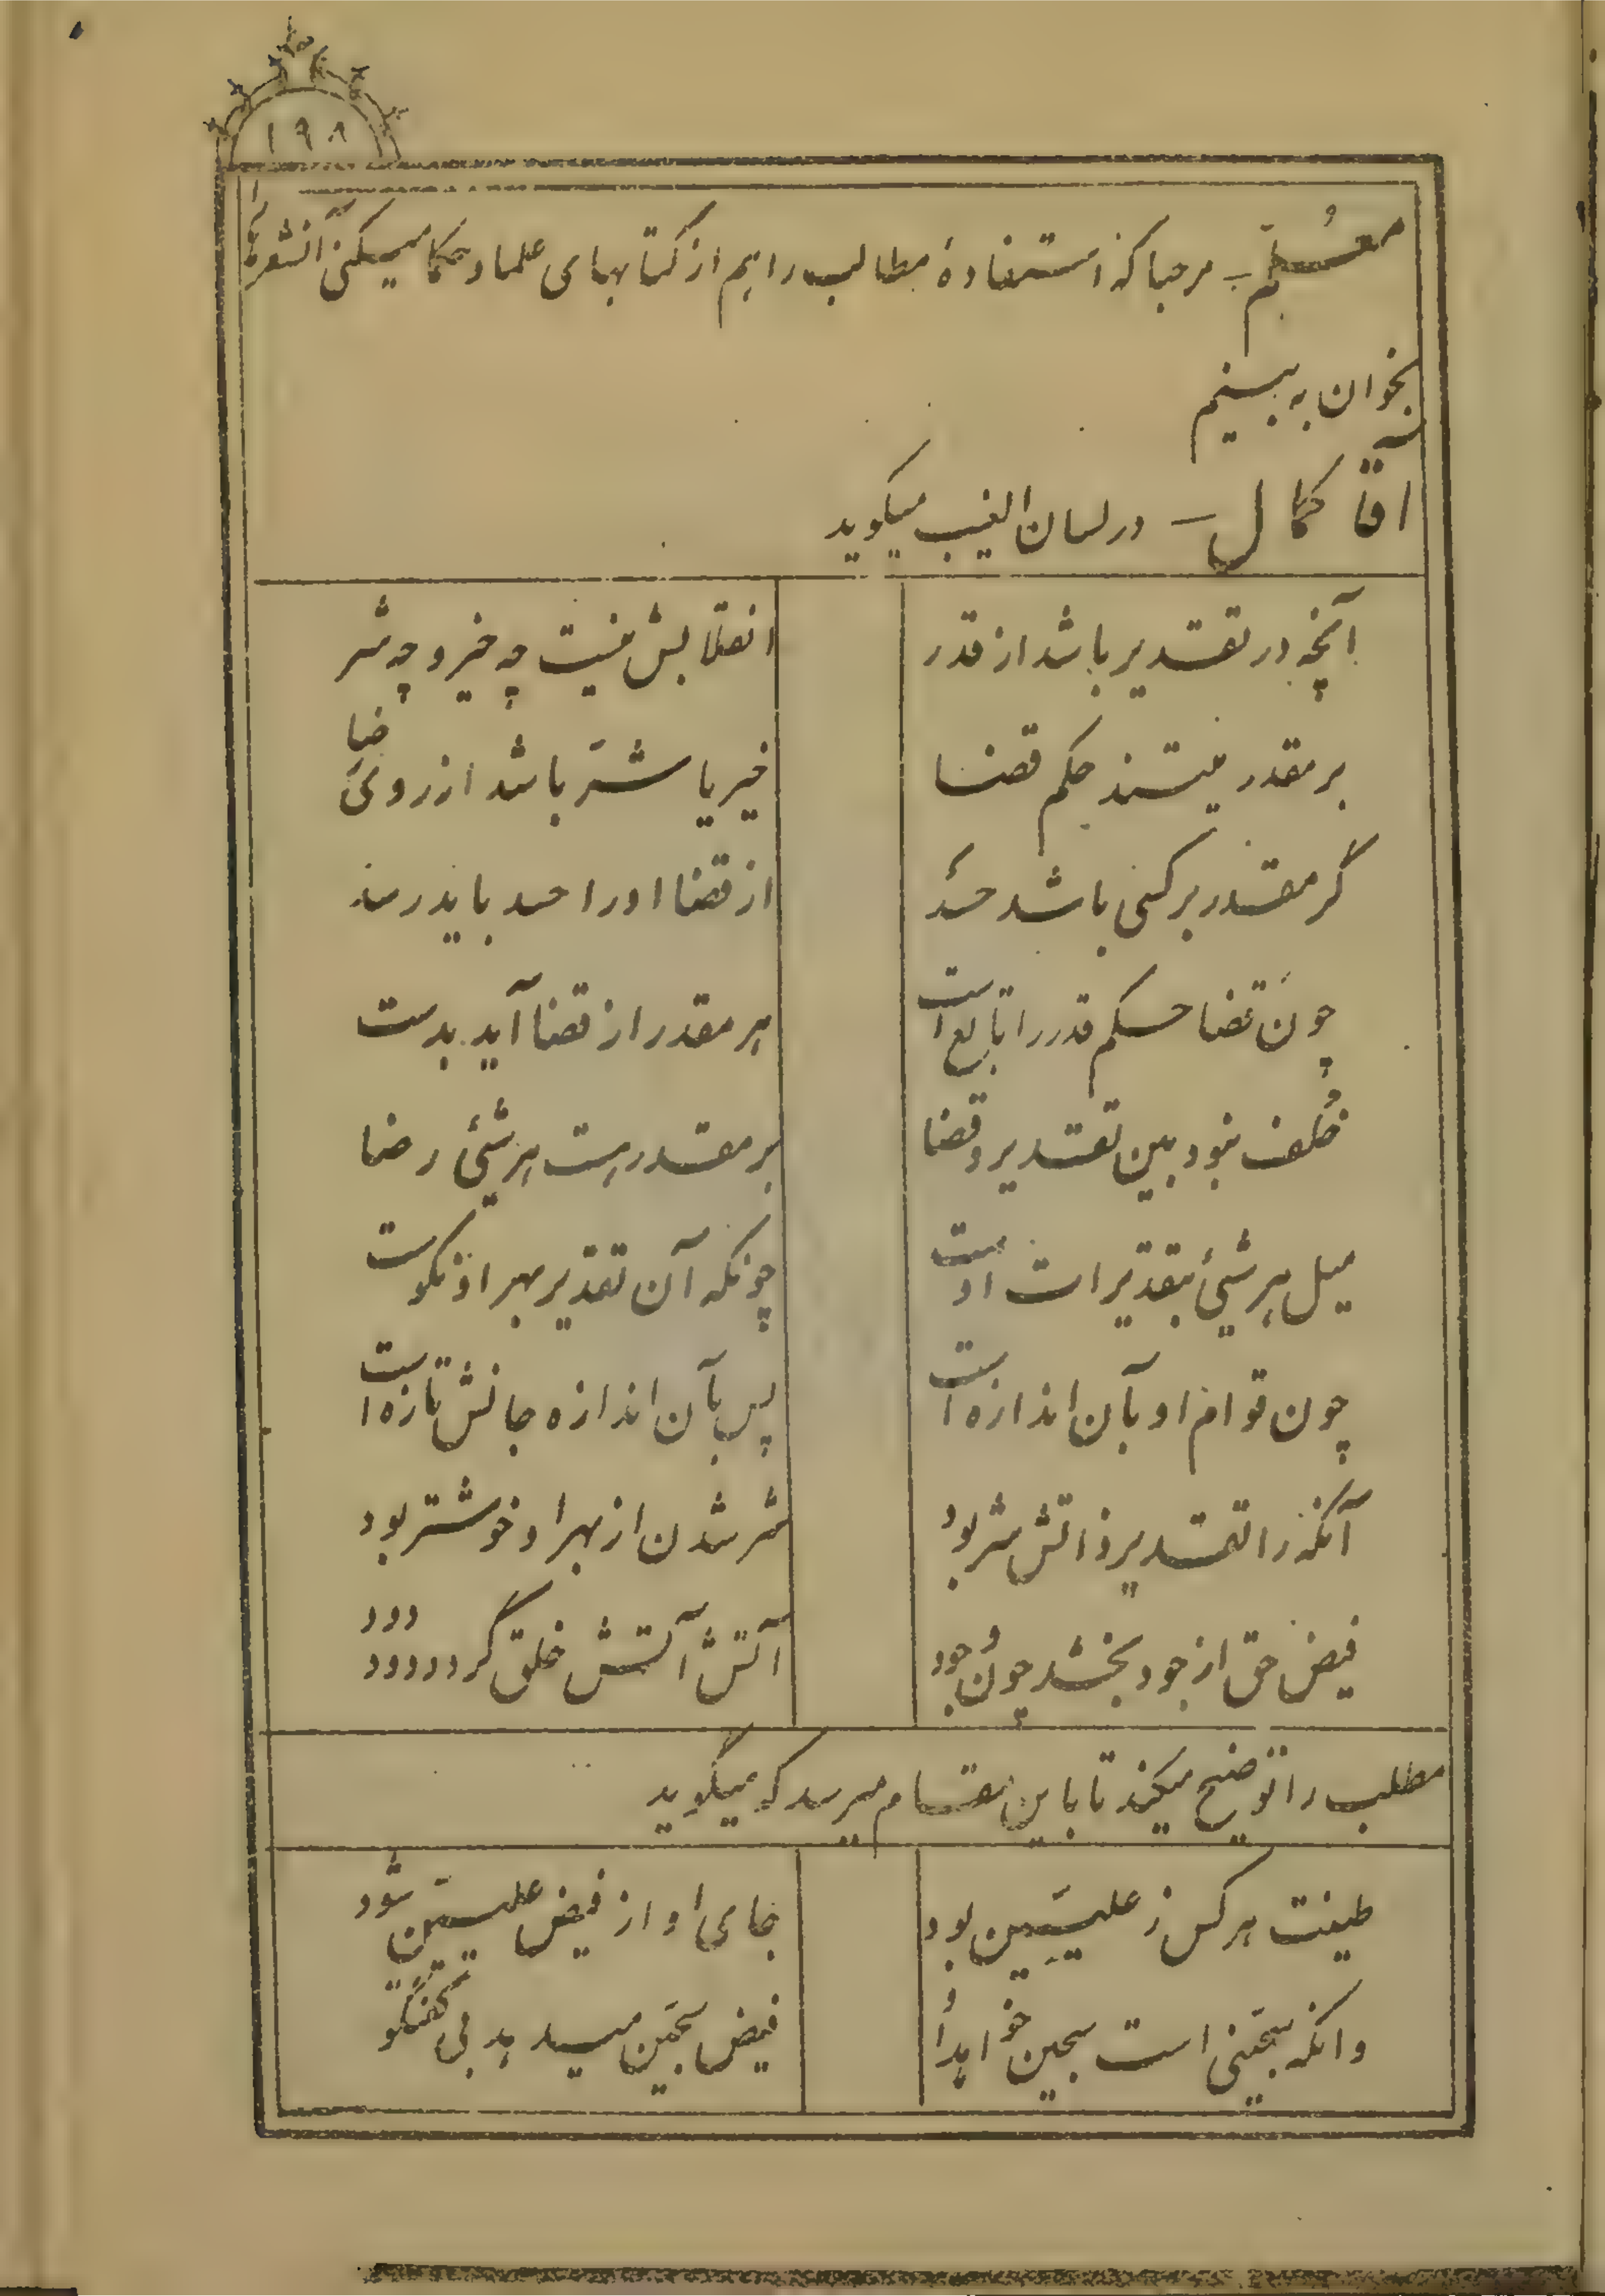 ۱۹۸
معلّم ـ مرحبا که استفادهٔ مطالب را هم از کتابهای علما و حکما میکنی آنشعرها را
بخوان به بینیم
آقا کمال ـ در لسان الغیب میکوید
آنچه در تقدیر باشد از قدر انقلابش نیست چه خیر و چه شر
بر مقدر میتند حکم قضا خیر یا شرّ باشد از روی ضیا
گر مقدر بر کسی باشد حسد از قضا او را حسد باید رسد
چون قضا حکم قدر را تابع است هر مقدر از قضا آید بدست
خُلف نبود بین تقدیر و قضا بر مقدر هست هر شیئی رضا
میل هر شیئ بتقدیرات اوست چونکه آن تقدیر بهر او نکوست
چون قوام او بآن اندازه است پس بآن اندازه جانش تازه است
آنکه را تقدیر ذاتش شر بود شر شدن از بهر او خوشتر بود
فیض حق از جود بخشد چون وجود آتش آتش خلق گردد دود دود
مطلب را توضیح میکند تا باین مقام میرسد که میگوید
طینت هر کس ز علیّین بود جای او از فیض علیین شود
وانکه سجّینی است سجین خواهد او فیض سجّین میدهد بی گفتگو